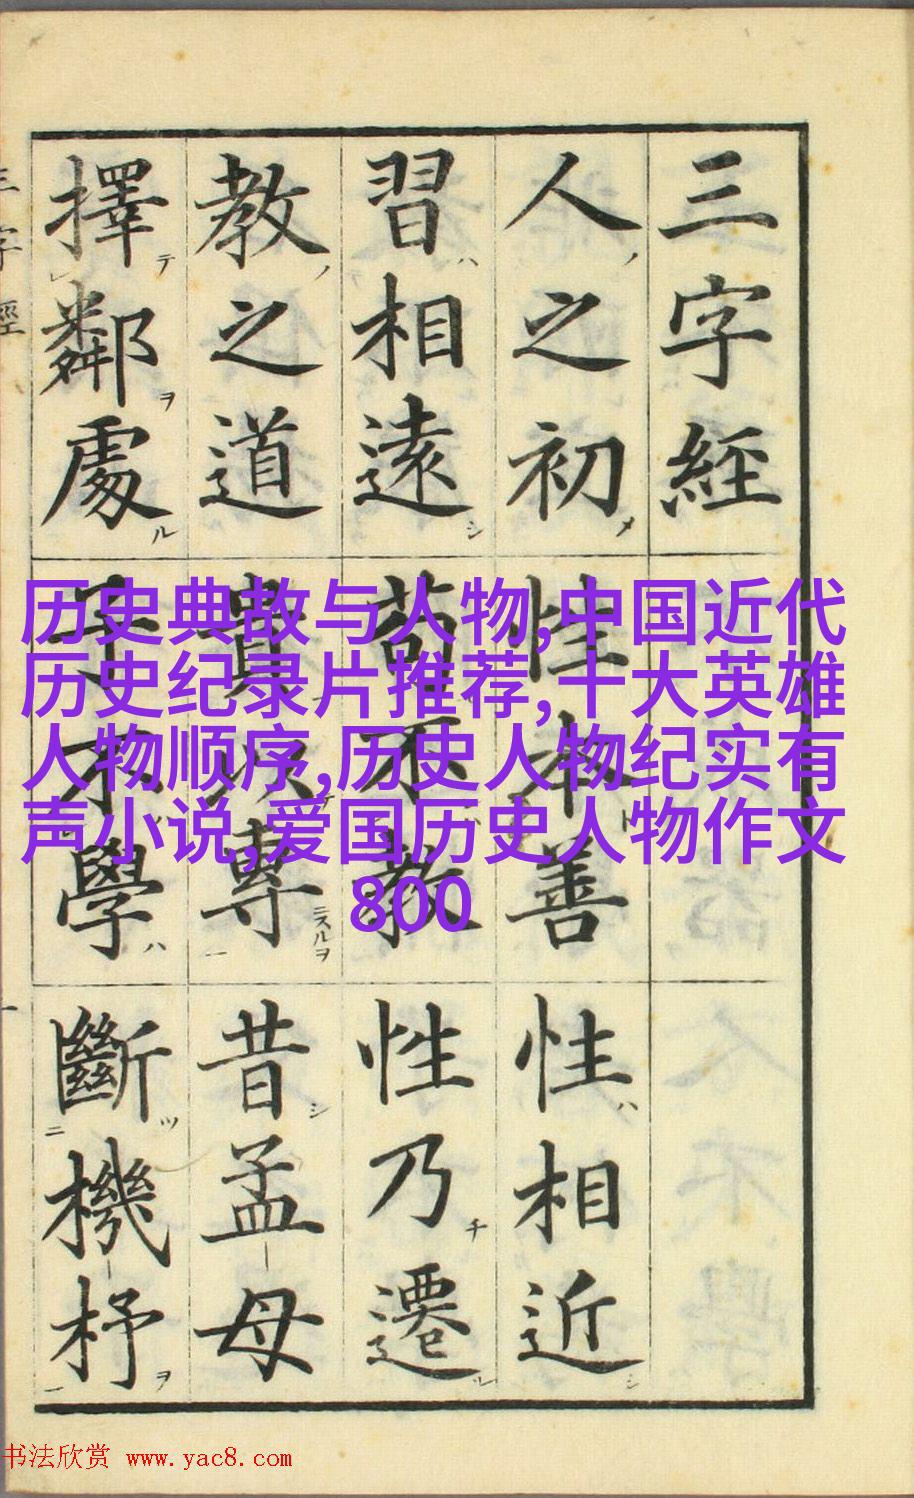 三字経
人之初 性本善 性相近
習相遠 苟不教 性乃遷
教之道 貴以專 昔孟母
擇鄰處 子不學 斷機杼
三字經 一
历史典故与人物,中国近代
历史纪录片推荐,十大英雄
人物顺序,历史人物纪实有
声小说,爱国历史人物作文
800
书法欣赏 www.yac8.com